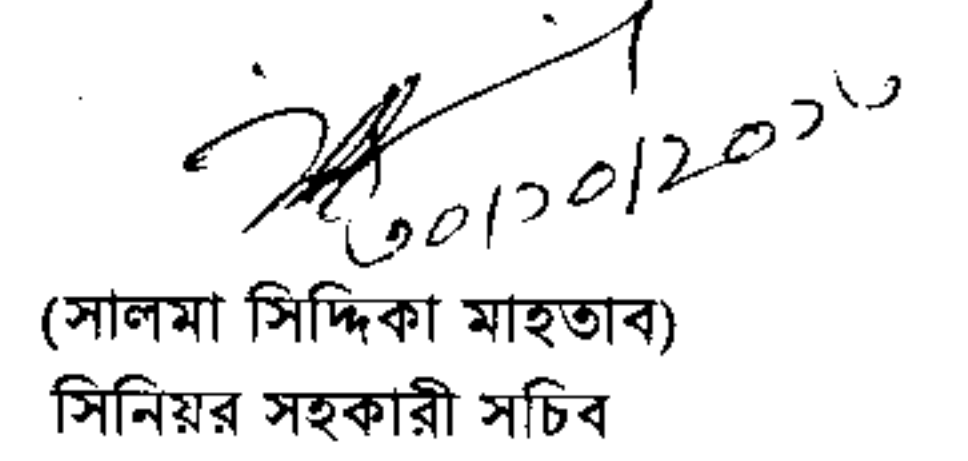 ৩০/১০/২০১৬
(সালমা সিদ্দিকা মাহতাব)
সিনিয়র সহকারী সচিব